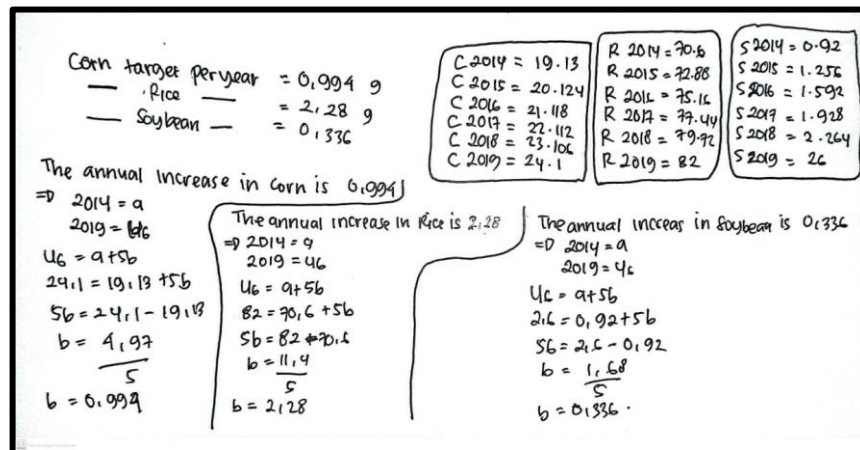 Corn target per year = 0,994 g
— Rice — = 2,28 g
— Soybean — = 0,336
C 2014 = 19.13
C 2015 = 20.124
C 2016 = 21.118
C 2017 = 22.112
C 2018 = 23.106
C 2019 = 24.1
R 2014 = 70.6
R 2015 = 72.88
R 2016 = 75.16
R 2017 = 77.44
R 2018 = 79.72
R 2019 = 82
S 2014 = 0.92
S 2015 = 1.256
S 2016 = 1.592
S 2017 = 1.928
S 2018 = 2.264
S 2019 = 26
The annual increase in corn is 0,994
⇒ 2014 = a
2019 = u6
U6 = a+5b
24,1 = 19,13 +5b
5b = 24,1 - 19,13
b = 4,97
5
b = 0.994
The annual increase in Rice is 2,28
⇒ 2014 = a
2019 = u6
U6 = a+5b
82 = 70,6 +5b
5b = 82 - 70,6
b = 11,4
5
b = 2,28
The annual increas in Soybean is 0,336
⇒ 2014 = a
2019 = u6
U6 = a+5b
2,6 = 0,92+5b
5b = 2,6 - 0,92
b = 1,68
5
b = 0,336 .